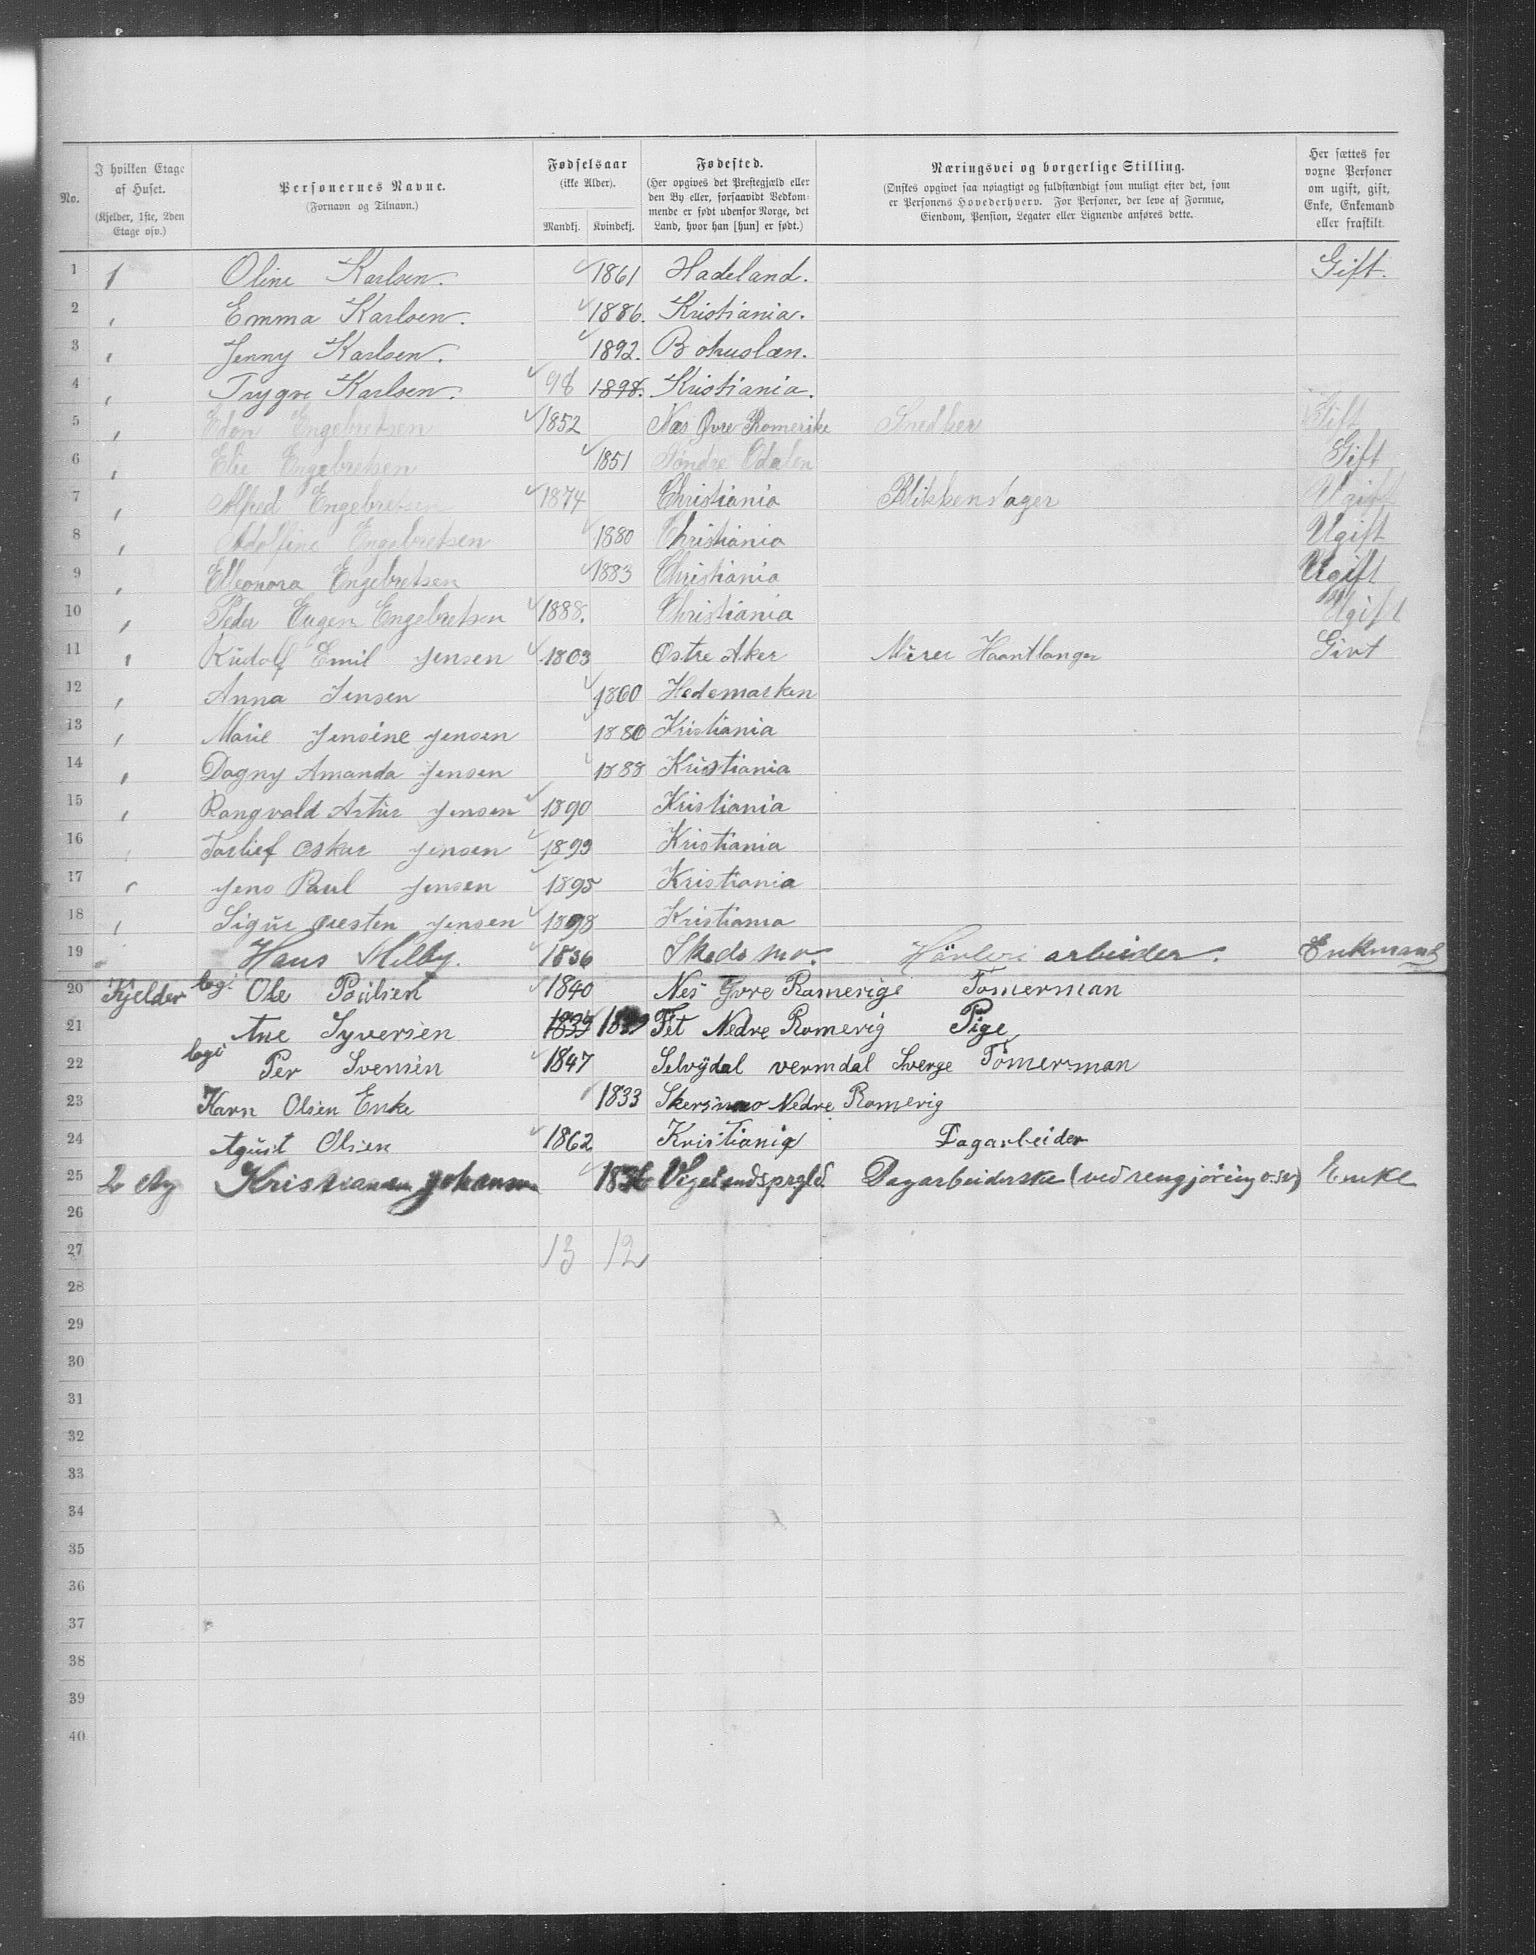 No.
I hvilken Etage af Huset.
(Kjelder, 1ste, 2den Etage osv.)
Personernes Navne.
(Fornavn og Tilnavn.)
Fødselsaar
(ikke Alder).
Mandkj. Kvindekj.
Fødested.
(Her opgives det Prestegjæld eller
den By eller, forsaavidt Vedkom-
mende er født udenfor Norge, det
Land, hvor han [hun] er født.)
Næringsvei og borgerlige Stilling.
(Ønskes opgivet saa nøiagtigt og fuldstændigt som muligt efter det, som
er Personens Hovederhverv. For Personer, der leve af Formue,
Eiendom, Pension, Legater eller Lignende anføres dette.
Her sættes for
voxne Personer
om ugift, gift,
Enke, Enkemand
eller fraskilt.
1 1 Oline Karlsen. 1861 Hadeland. Gift.
2 " Emma Karlsen. 1886. Kristiania.
3 " Jenny Karlsen. 1892. Bohuslæn.
4 " Trygve Karlsen. 98 1898. Kristiania.
5 " Engebretsen 1852 Næs Øvre Romerike Snedker Gift
6 " Engebretsen 1851 Søndre Odalen Gift
7 " Alfred Engebretsen 1874 Christiania Blikkenslager Ugift
8 " Adolfine Engebretsen 1880 Christiania Ugift
9 " Elleonora Engebretsen 1883 Christiania Ugift
10 " Peder Eugen Engebretsen 1888. Christiania Ugift
11 " Rudolf Emil Jensen 1863 Ostre Aker Murer Haantlanger Givt
12 " Anna Jensen 1860 Hedemarken
13 " Marie Jensine Jensen 1880 Kristiania
14 " Dagny Amanda Jensen 1888 Kristiania
15 " Rangvald Artur Jensen 1890 Kristiania
16 " Torlief Oskar Jensen 1893 Kristiania
17 " Jens Paul Jensen 1895 Kristiania
18 " Sigur Jensen 1898 Kristiania
19 " Hans Melby. 1836 Skedsmo. Høvleri arbeider. Enkemand
20 Kjelder logi Ole Poulsen 1840 Nes Yvre Ramerige Tømerman
21 Ane Syversen 1839 1839 Fet Nedre Romerig Pige
22 logi Per Svensen 1847 Selvydal vermdal Sverge Tømerman
23 Karn Olsen Enke 1833 Skersmo Nedre Romerig
24 Agust Olsen 1862 Kristiania Dagarbeider
25 2 Etg Kristianen Johansen 1836 Vigelandsprgld. Dagarbeiderske (ved rengjøring o.sv) Enke
26
27 13 12
28
29
30
31
32
33
34
35
36
37
38
39
40